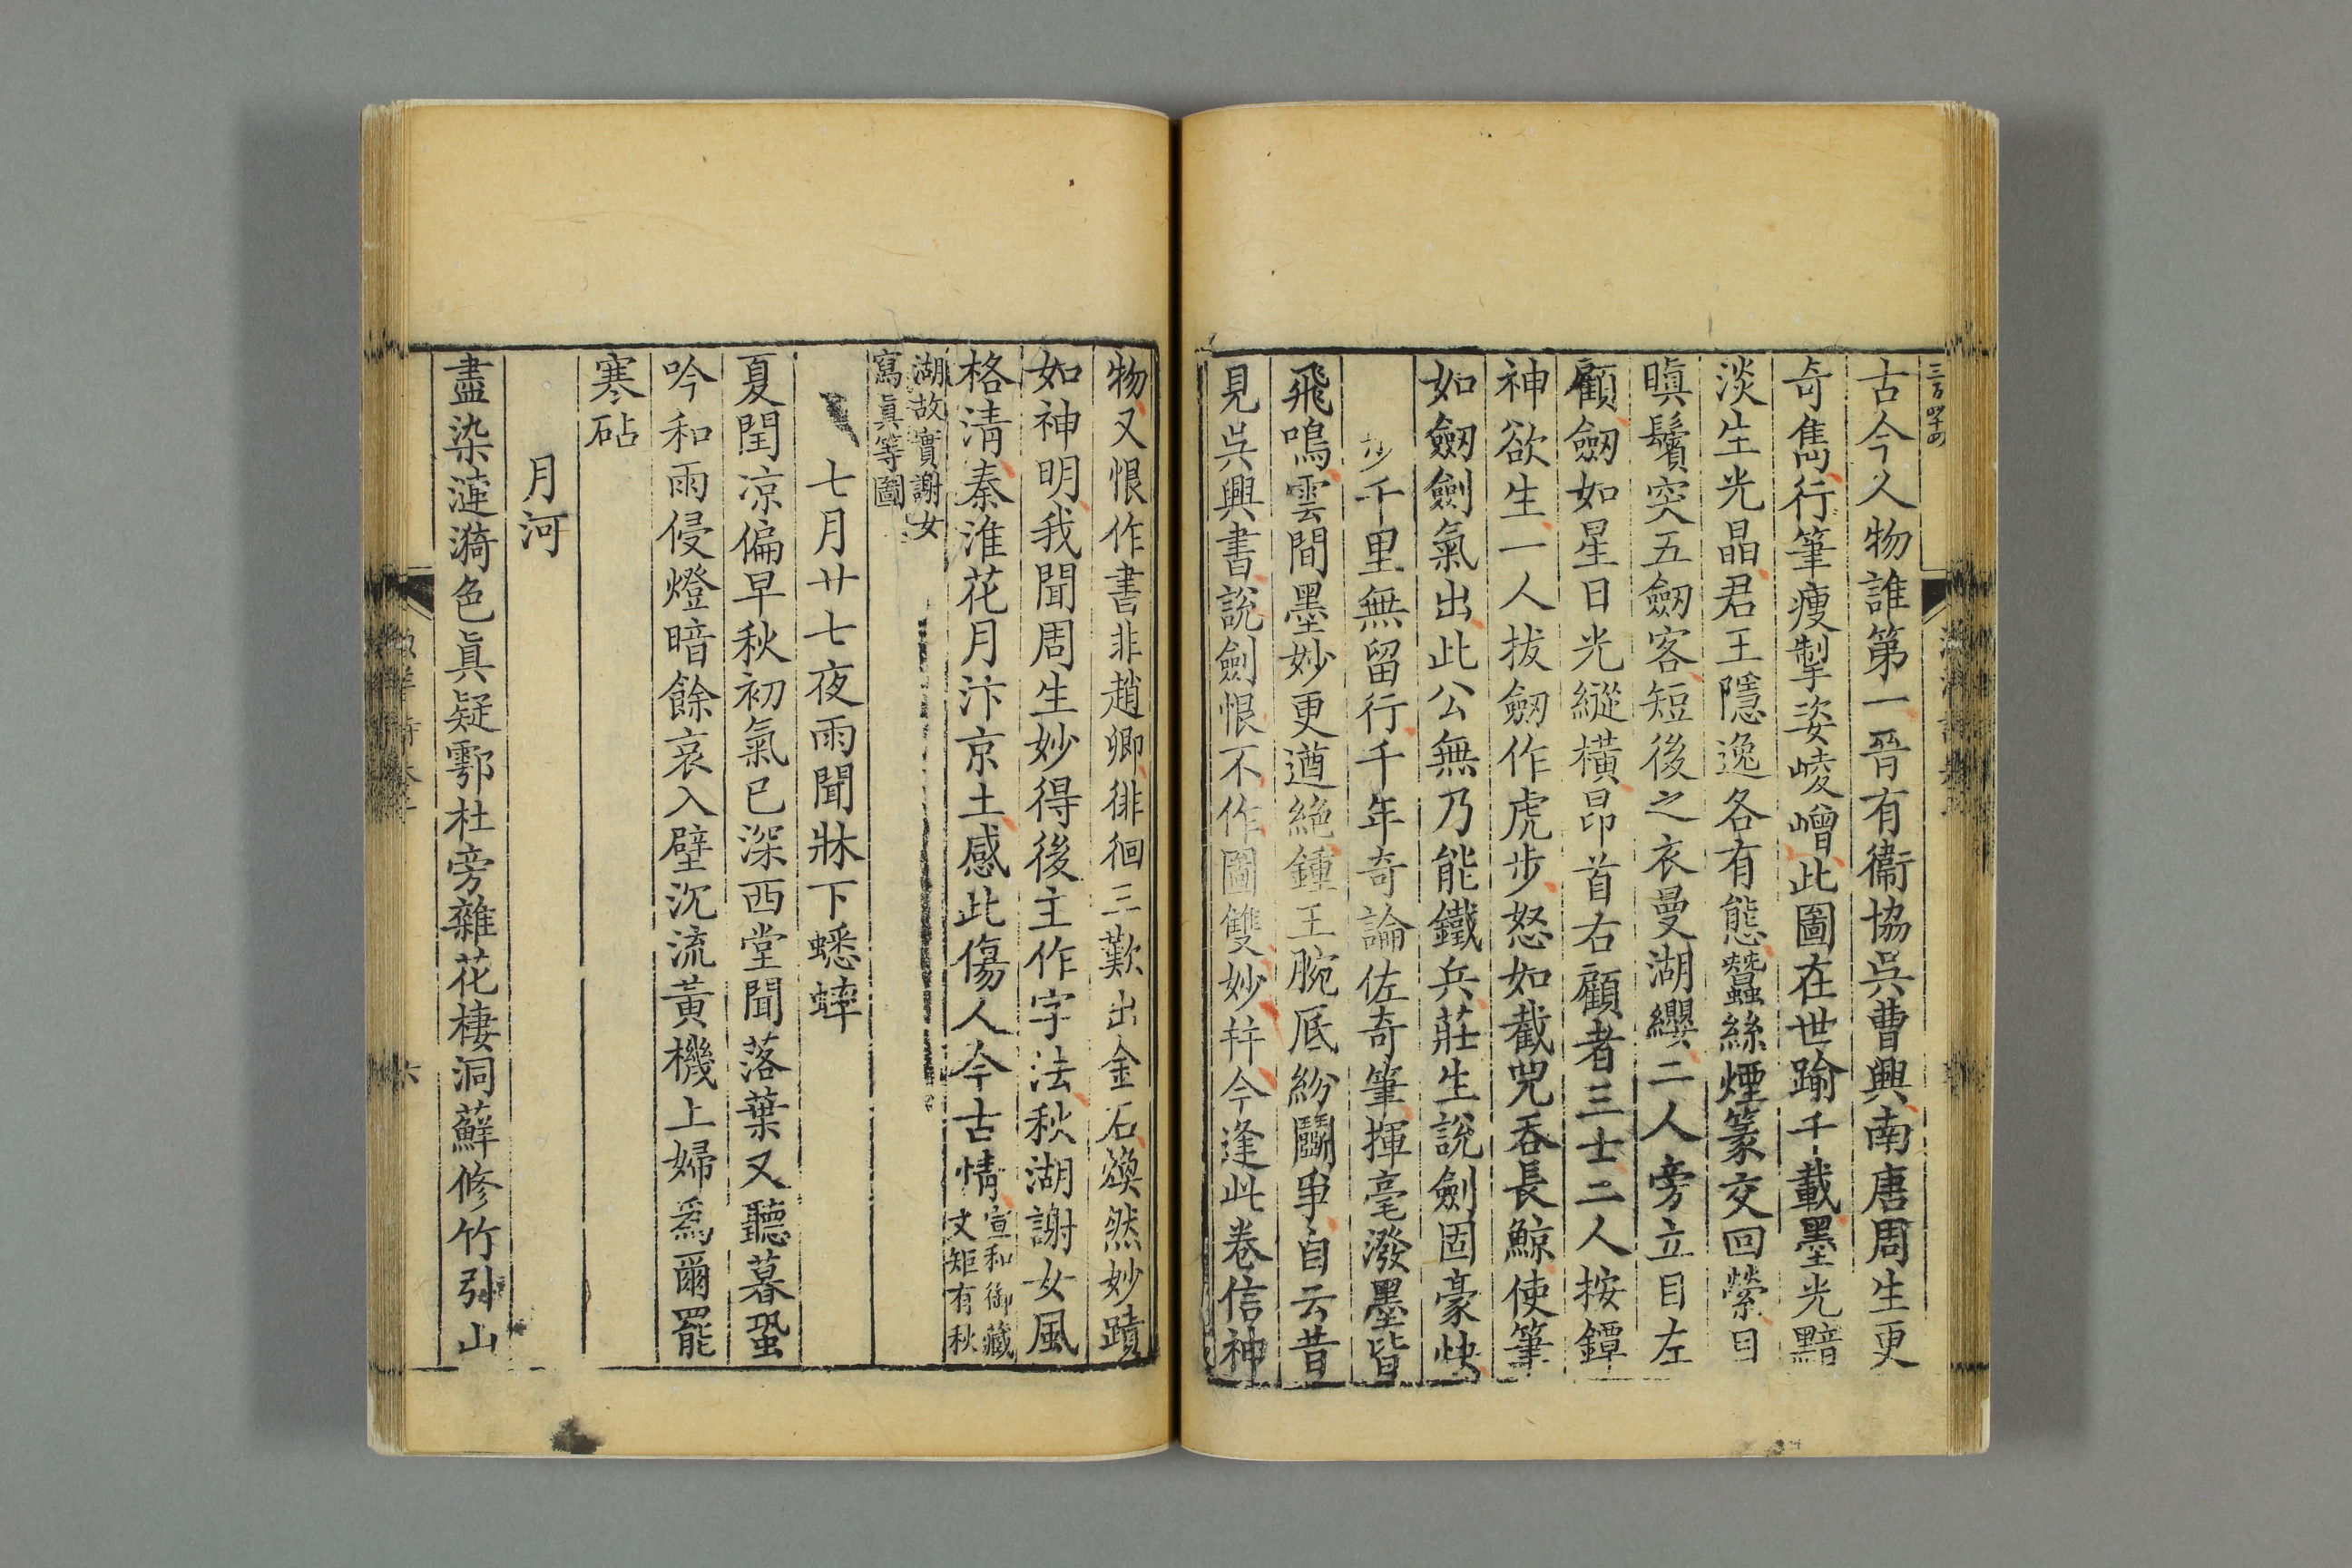 三百四十四
古今人物誰第一晉有衞協吳曹興南唐周生更
奇雋行筆瘦掣姿崚嶒此圖在世踰千載墨光黯
淡生光晶君王隱逸各有態蠶絲煙篆交回縈日
瞋鬚突五劒客短後之衣曼湖纓二人旁立目左
顧劒如星日光縱橫昂首右顧者三士二人按鐔
神欲生一人拔劒作虎步怒如截兕吞長鯨使筆
如劒劍氣出此公無乃能鐵兵莊生說劍固豪快
少千里無留行千年奇論佐奇筆揮毫潑墨皆
飛鳴雲間墨妙更遒絶鍾王腕底紛鬭爭自云昔
見吳興書說劍恨不作圖雙妙幷今逢此卷信神
物又恨作書非趙卿徘徊三歎出金石煥然妙蹟
如神明我聞周生妙得後主作字法秋湖謝女風
格淸秦淮花月汴京土感此傷人今古情宣和御藏文矩有秋
湖故實謝女寫眞等圖
七月廿七夜雨聞牀下蟋蟀
夏閏凉偏早秋初氣已深西堂聞落葉又聽暮蛩
吟和雨侵燈暗餘哀入壁沉流黃機上婦爲爾罷
寒砧
月河
盡染漣漪色眞疑鄠杜旁雜花棲洞蘚修竹引山
六